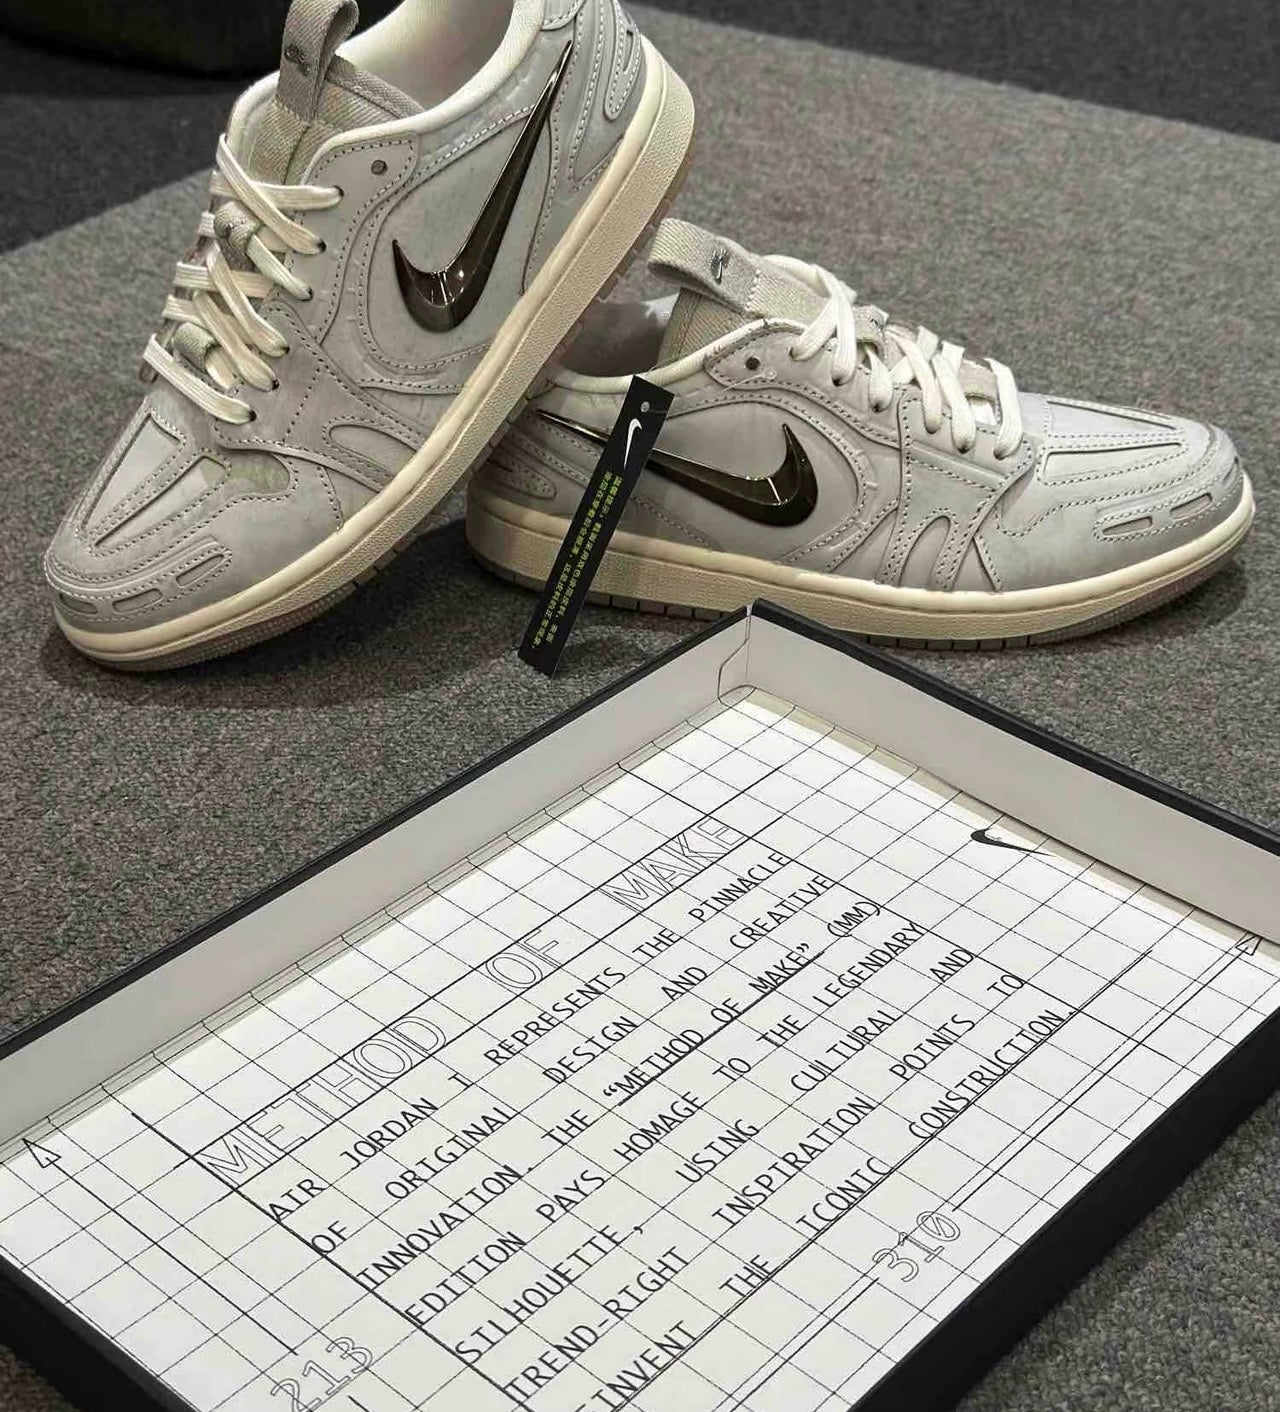 METHOD OF MAKE
AIR JORDAN I REPRESENTS THE PINNACLE
OF ORIGINAL DESIGN AND CREATIVE
INNOVATION. THE “METHOD OF MAKE” (MM)
EDITION PAYS HOMAGE TO THE LEGENDARY
SILHOUETTE, USING CULTURAL AND
TREND-RIGHT INSPIRATION POINTS TO
THE ICONIC CONSTRUCTION.
310
213